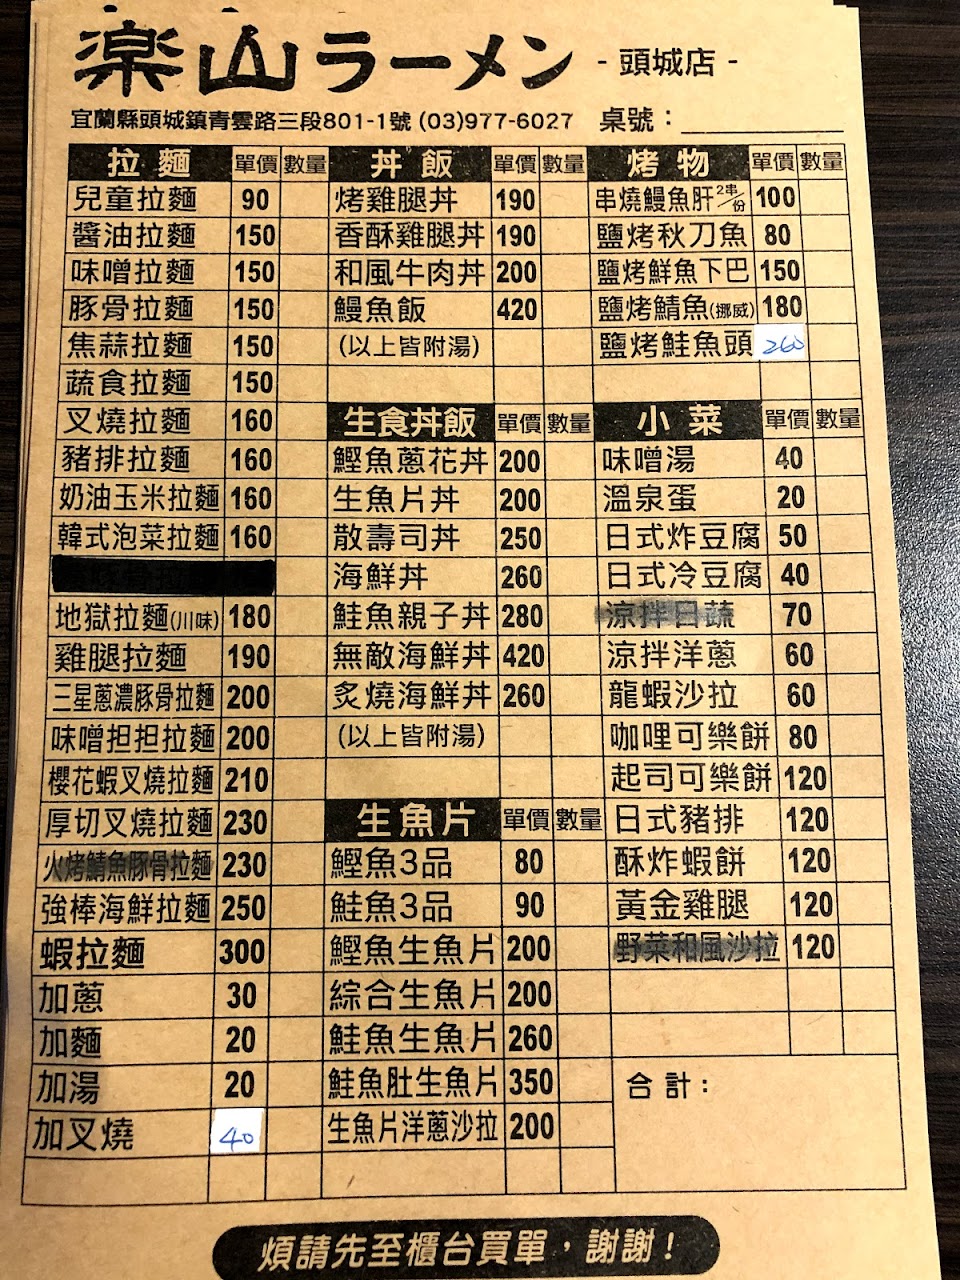 楽山ラーメン - 頭城店 -
宜蘭縣頭城鎮青雲路三段801-1號 (03)977-6027 桌號：
拉麵 單價 數量
兒童拉麵 90
醬油拉麵 150
味噌拉麵 150
豚骨拉麵 150
焦蒜拉麵 150
蔬食拉麵 150
叉燒拉麵 160
豬排拉麵 160
奶油玉米拉麵 160
韓式泡菜拉麵 160
地獄拉麵(川味) 180
雞腿拉麵 190
三星蔥濃豚骨拉麵 200
味噌担担拉麵 200
櫻花蝦叉燒拉麵 210
厚切叉燒拉麵 230
火烤鯖魚豚骨拉麵 230
強棒海鮮拉麵 250
蝦拉麵 300
加蔥 30
加麵 20
加湯 20
加叉燒 40
丼飯 單價 數量
烤雞腿丼 190
香酥雞腿丼 190
和風牛肉丼 200
鰻魚飯 420
(以上皆附湯)
生食丼飯 單價 數量
鰹魚蔥花丼 200
生魚片丼 200
散壽司丼 250
海鮮丼 260
鮭魚親子丼 280
無敵海鮮丼 420
炙燒海鮮丼 260
(以上皆附湯)
生魚片 單價 數量
鰹魚3品 80
鮭魚3品 90
鰹魚生魚片 200
綜合生魚片 200
鮭魚生魚片 260
鮭魚肚生魚片 350
生魚片洋蔥沙拉 200
烤物 單價 數量
串燒鰻魚肝2串/份 100
鹽烤秋刀魚 80
鹽烤鮮魚下巴 150
鹽烤鯖魚(挪威) 180
鹽烤鮭魚頭 260
小菜 單價 數量
味噌湯 40
溫泉蛋 20
日式炸豆腐 50
日式冷豆腐 40
涼拌日蔬 70
涼拌洋蔥 60
龍蝦沙拉 60
咖哩可樂餅 80
起司可樂餅 120
日式豬排 120
酥炸蝦餅 120
黃金雞腿 120
野菜和風沙拉 120
合計：
煩請先至櫃台買單，謝謝！